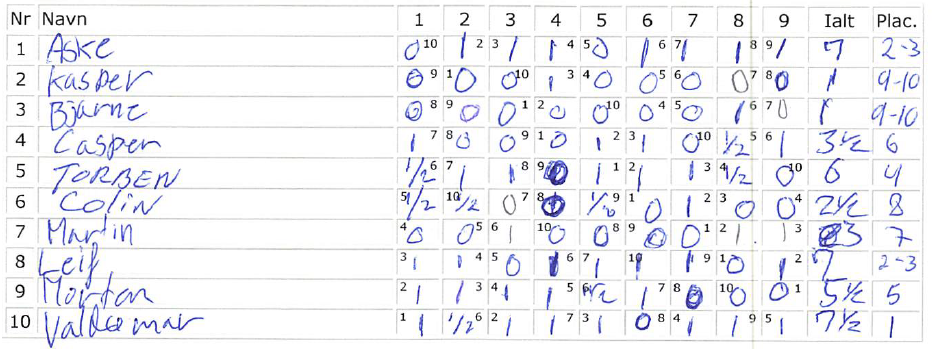 Nr Navn 1 2 3 4 5 6 7 8 9 Ialt Plac.
1 Aske 0 10 1 2 3 1 1 4 5 0 1 6 7 1 1 8 9 1 7 2-3
2 Kasper 0 9 1 0 0 10 1 3 4 0 0 5 6 0 0 7 8 0 1 9-10
3 Bjarne 0 8 9 0 0 1 2 0 0 10 0 4 5 0 1 6 7 0 1 9-10
4 Casper 1 7 8 0 0 9 1 0 1 2 3 1 0 10 1/2 5 6 1 3 1/2 6
5 TORBEN 1/2 6 7 1 1 8 9 0 1 1 2 1 1 3 4 1/2 0 10 6 4
6 Colin 5 1/2 10 1/2 0 7 8 0 1/2 9 1 0 1 2 3 0 0 4 2 1/2 8
7 Martin 4 0 0 5 6 1 10 0 0 8 9 0 0 1 2 1 1 3 3 7
8 Leif 3 1 1 4 5 0 1 6 7 1 10 1 1 9 1 0 1 2 7 2-3
9 Morten 2 1 1 3 4 1 1 5 6 1/2 1 7 8 0 10 0 0 1 5 1/2 5
10 Valdemar 1 1 1/2 6 2 1 1 7 3 1 0 8 4 1 1 9 5 1 7 1/2 1